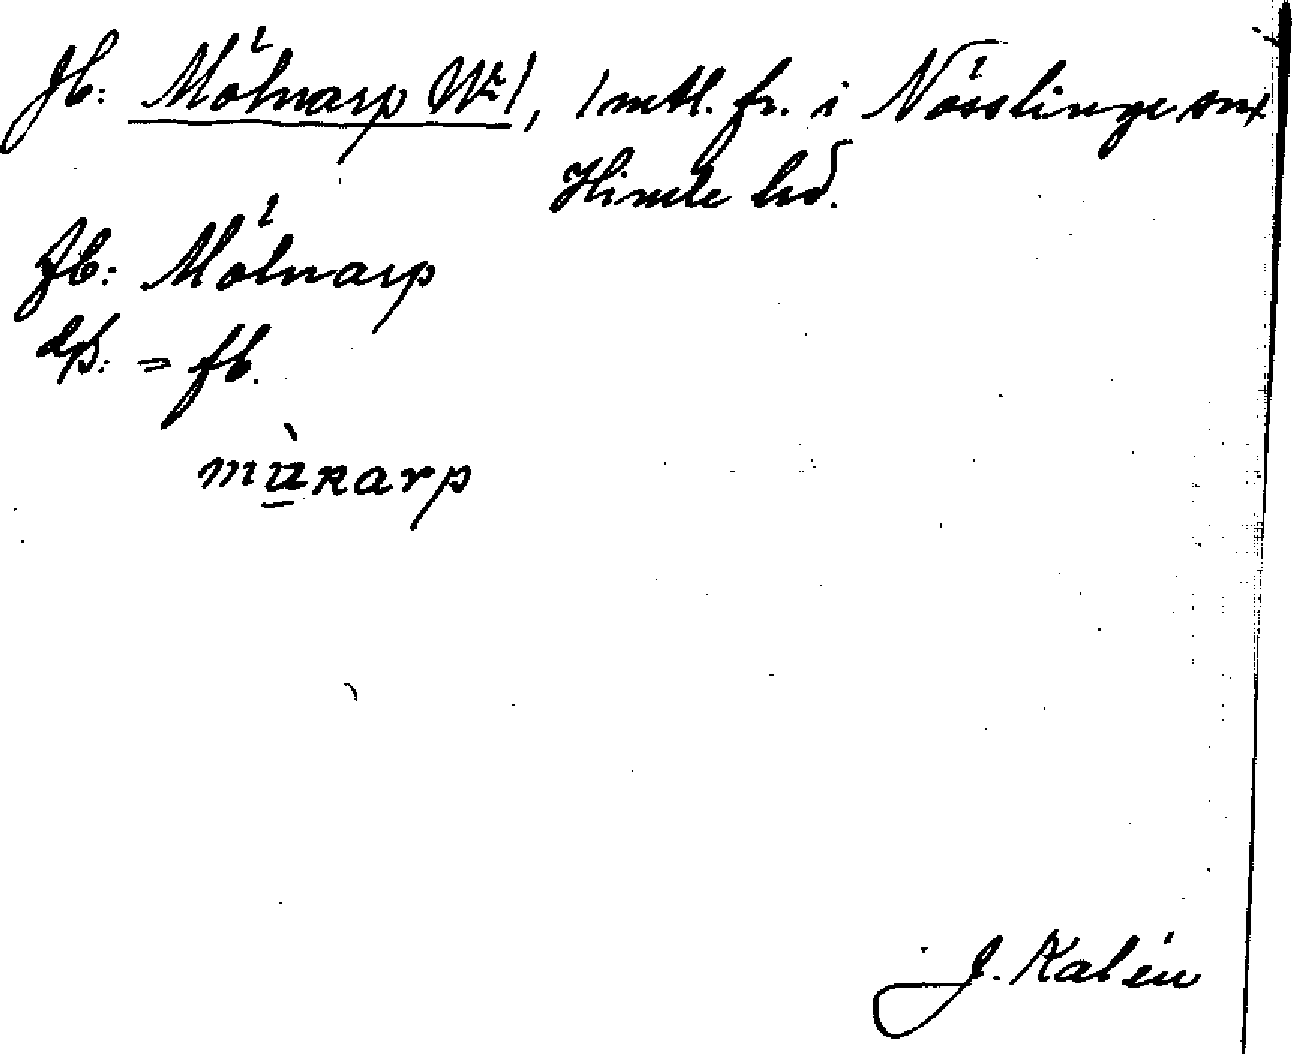 Jb: Mölnarp No 1, 1 mtl. fr. i Nösslinge sn
Himle hd.
Fb: Mölnarp
dp. = fb.
mùnarp
J. Kalén